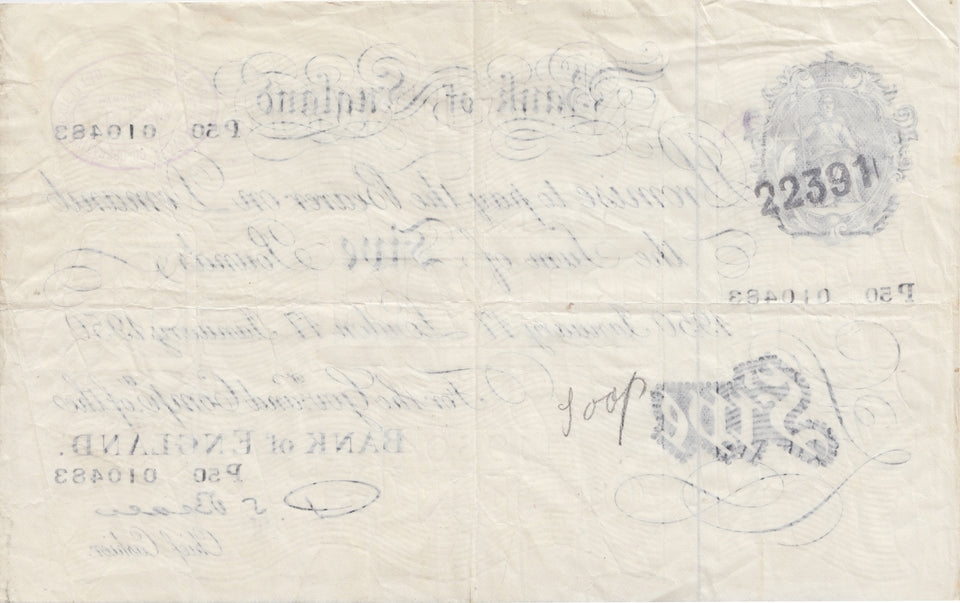 Bank of England
P50 010483
22391
I Promise to pay the Bearer on Demand
the Sum of Five Pounds
P50 010483
1950 January 17 London 17 January 1950
For the Govr. and Compa. of the
Five
BANK OF ENGLAND.
P50 010483
P S Beale
Chief Cashier